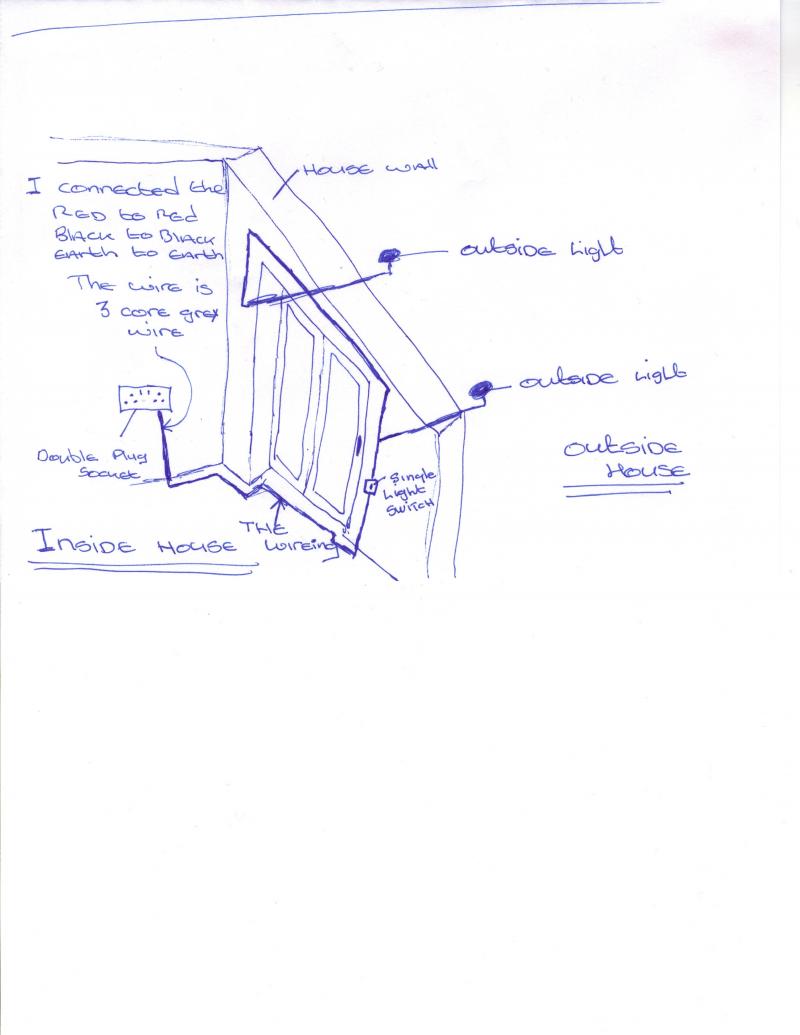 House wall
I connected the
Red to Red
Black to Black
Earth to Earth
The wire is
3 core grey
wire
outside Light
outside Light
Double Plug
Socket
Single
Light
Switch
outside
House
Inside House
The
wireing